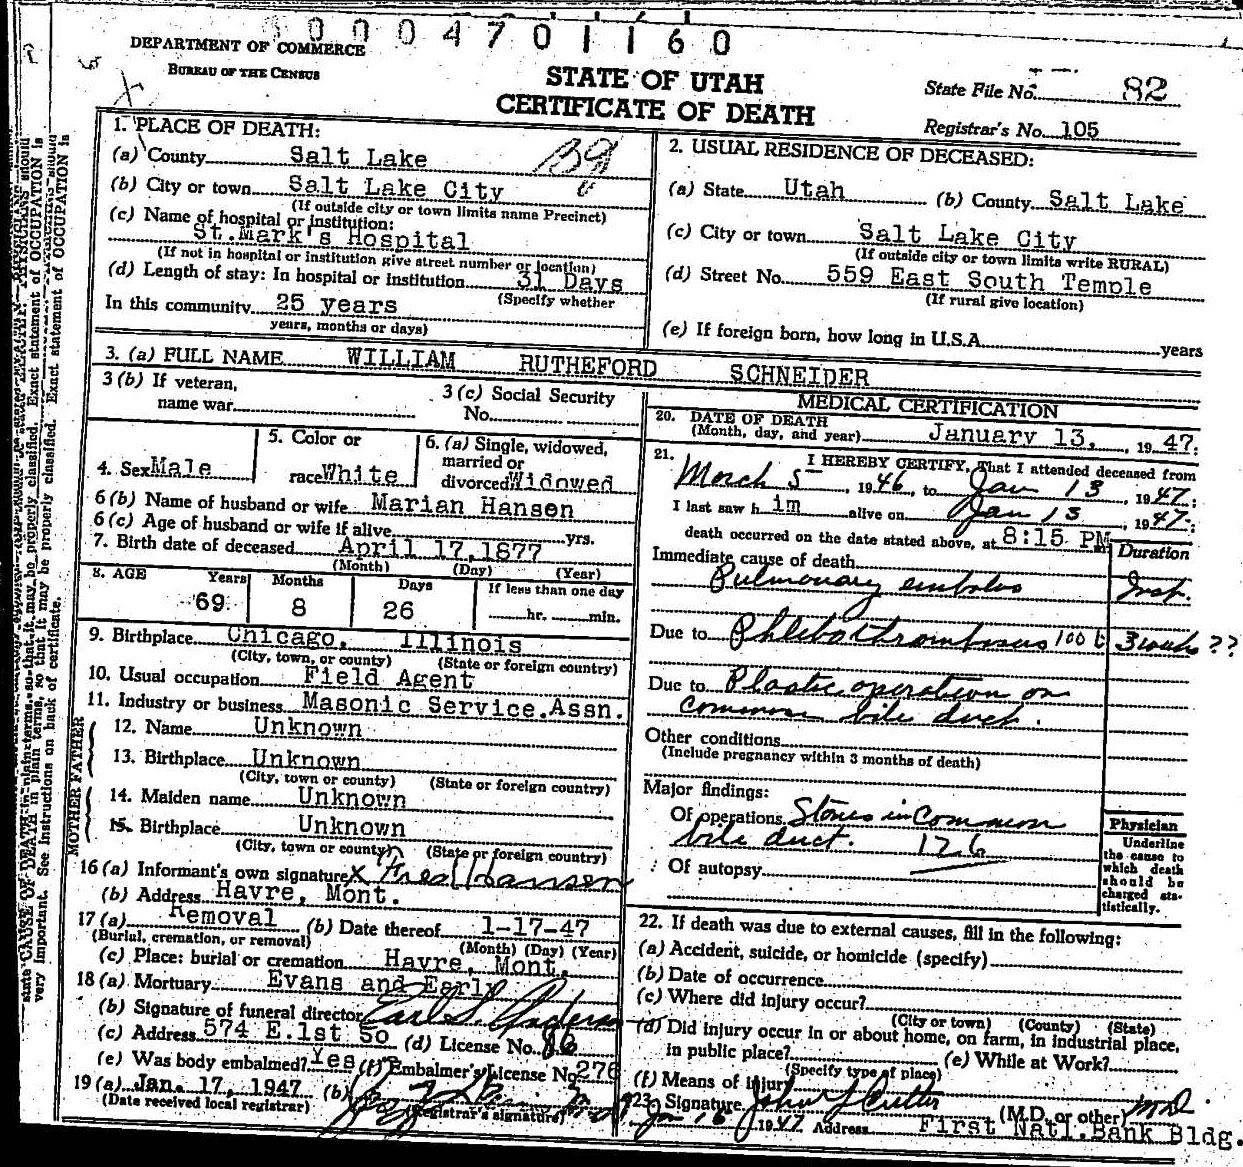 0004701160
DEPARTMENT OF COMMERCE
BUREAU OF THE CENSUS
STATE OF UTAH
CERTIFICATE OF DEATH
State File No. 82
Registrar's No. 105
1. PLACE OF DEATH:
(a) County Salt Lake
(b) City or town Salt Lake City
(If outside city or town limits name Precinct)
(c) Name of hospital or institution:
St.Mark's Hospital
(If not in hospital or institution give street number or location)
(d) Length of stay: In hospital or institution 31 Days
(Specify whether
In this community 25 years
years, months or days)
2. USUAL RESIDENCE OF DECEASED:
(a) State Utah (b) County Salt Lake
(c) City or town Salt Lake City
(If outside city or town limits write RURAL)
(d) Street No. 559 East South Temple
(If rural give location)
(e) If foreign born, how long in U.S.A. years
3. (a) FULL NAME WILLIAM RUTHEFORD SCHNEIDER
3 (b) If veteran,
name war
3 (c) Social Security
No.
4. Sex Male
5. Color or
race White
6. (a) Single, widowed,
married or
divorced Widowed
6 (b) Name of husband or wife Marian Hansen
6 (c) Age of husband or wife if alive yrs.
7. Birth date of deceased April 17, 1877
(Month) (Day) (Year)
8. AGE Years Months Days If less than one day
69 8 26 hr. min.
9. Birthplace Chicago, Illinois
(City, town, or county) (State or foreign country)
10. Usual occupation Field Agent
11. Industry or business Masonic Service.Assn.
FATHER
12. Name Unknown
13. Birthplace Unknown
(City, town or county) (State or foreign country)
MOTHER
14. Maiden name Unknown
15. Birthplace Unknown
(City, town or county) (State or foreign country)
16 (a) Informant's own signature X Fred Hansen
(b) Address Havre, Mont.
17 (a) Removal (b) Date thereof 1-17-47
(Burial, cremation, or removal) (Month) (Day) (Year)
(c) Place: burial or cremation Havre, Mont.
18 (a) Mortuary Evans and Early
(b) Signature of funeral director Earl S.
(c) Address 574 E.1st So (d) License No. 86
(e) Was body embalmed? Yes (f) Embalmer's License No. 276
19 (a) Jan. 17, 1947 (b)
(Date received local registrar) (Registrar's signature)
MEDICAL CERTIFICATION
20. DATE OF DEATH
(Month, day, and year) January 13, , 19 47.
21. I HEREBY CERTIFY, That I attended deceased from
March 5 , 19 46, to Jan 13 , 19 47;
I last saw h im alive on Jan 13 , 19 47;
death occurred on the date stated above, at 8:15 PM
Duration
Immediate cause of death
Pulmonary embolus Inst.
Due to Phlebothrombosis 100 b 3 weeks ??
Due to Plastic operation on
common bile duct.
Other conditions
(Include pregnancy within 3 months of death)
Major findings:
Of operations Stones in common
bile duct. 126
Of autopsy
Physician
Underline
the cause to
which death
should be
charged sta-
tistically.
22. If death was due to external causes, fill in the following:
(a) Accident, suicide, or homicide (specify)
(b) Date of occurrence
(c) Where did injury occur?
(City or town) (County) (State)
(d) Did injury occur in or about home, on farm, in industrial place,
in public place? (e) While at Work?
(Specify type of place)
(f) Means of injury
23. Signature (M.D. or other) M.D.
Jan 16 1947 Address First Natl.Bank Bldg.
state CAUSE OF DEATH in plain terms, so that it may be properly classified. Exact statement of OCCUPATION is
very important. See instructions on back of certificate.